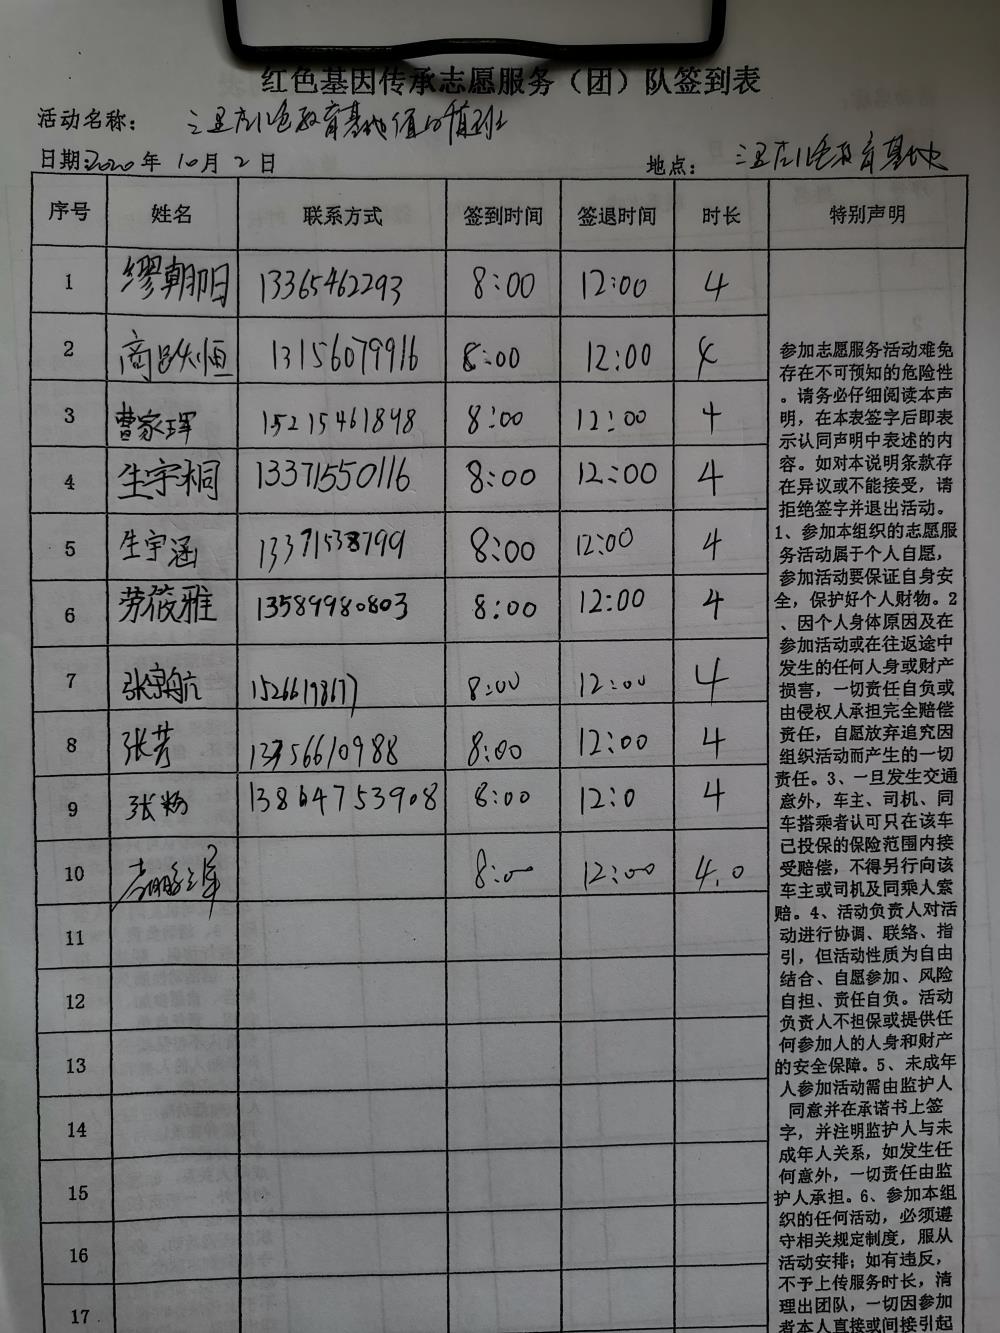 红色基因传承志愿服务（团）队签到表
活动名称： 三里庄红色教育基地值班
日期:2020年10月2日 地点： 三里庄红色教育基地
序号 姓名 联系方式 签到时间 签退时间 时长 特别声明
1 缪朝阳 13365462293 8:00 12:00 4
2 13156079916 8:00 12:00 4
3 曹家珲 15215461898 8:00 12:00 4
4 生宇桐 13371550116 8:00 12:00 4
5 生宇涵 13371538799 8:00 12:00 4
6 劳莜雅 13589980803 8:00 12:00 4
7 8:00 12:00 4
8 张芳 8:00 12:00 4
9 13864753908 8:00 12:0 4
10 8:00 12:00 4.0
11
12
13
14
15
16
17
参加志愿服务活动难免
存在不可预知的危险性
。请务必仔细阅读本声
明，在本表签字后即表
示认同声明中表述的内
容。如对本说明条款存
在异议或不能接受，请
拒绝签字并退出活动。
1、参加本组织的志愿服
务活动属于个人自愿，
参加活动要保证自身安
全，保护好个人财物。2
、因个人身体原因及在
参加活动或在往返途中
发生的任何人身或财产
损害，一切责任自负或
由侵权人承担完全赔偿
责任，自愿放弃追究因
组织活动而产生的一切
责任。3、一旦发生交通
意外，车主、司机、同
车搭乘者认可只在该车
已投保的保险范围内接
受赔偿，不得另行向该
车主或司机及同乘人索
赔。4、活动负责人对活
动进行协调、联络、指
引，但活动性质为自由
结合、自愿参加、风险
自担、责任自负。活动
负责人不担保或提供任
何参加人的人身和财产
的安全保障。5、未成年
人参加活动需由监护人
同意并在承诺书上签
字，并注明监护人与未
成年人关系，如发生任
何意外，一切责任由监
护人承担。6、参加本组
织的任何活动，必须遵
守相关规定制度，服从
活动安排；如有违反，
不予上传服务时长，清
理出团队，一切因参加
者本人直接或间接引起